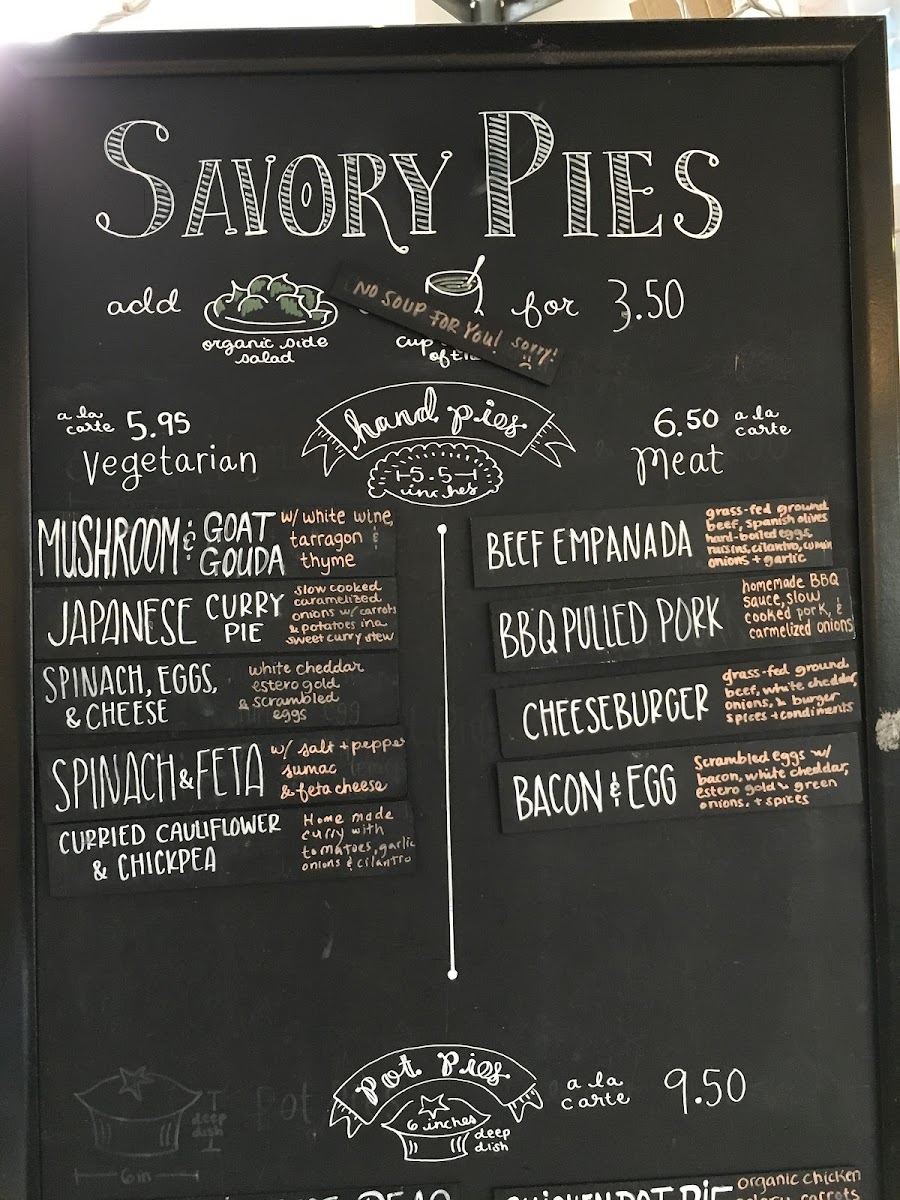 SAVORY PIES
add
organic side
salad
NO SOUP FOR YOU! sorry!
cup
for 3.50
a la
carte 5.95
Vegetarian
hand pies
5.5
inches
6.50 a la
carte
Meat
MUSHROOM & GOAT
GOUDA
w/ white wine,
tarragon &
thyme
JAPANESE CURRY
PIE
slow cooked
caramelized
onions w/ carrots
& potatoes in a
sweet curry stew
SPINACH, EGGS,
& CHEESE
white cheddar
estero gold
& scrambled
eggs
SPINACH & FETA
w/ salt + pepper
sumac
& feta cheese
CURRIED CAULIFLOWER
& CHICKPEA
Home made
curry with
tomatoes, garlic
onions & cilantro
BEEF EMPANADA
grass-fed ground
beef, spanish olives
hard-boiled eggs
raisins, cilantro, cumin
onions + garlic
BBQ PULLED PORK
homemade BBQ
sauce, slow
cooked pork, &
carmelized onions
CHEESEBURGER
grass-fed ground
beef, white cheddar,
onions, & burger
spices + condiments
BACON & EGG
Scrambled eggs w/
bacon, white cheddar,
estero gold & green
onions, + spices
pot pies
6 inches
deep
dish
a la
carte 9.50
deep
dish
6 in
CHICKEN POT PIE
organic chicken